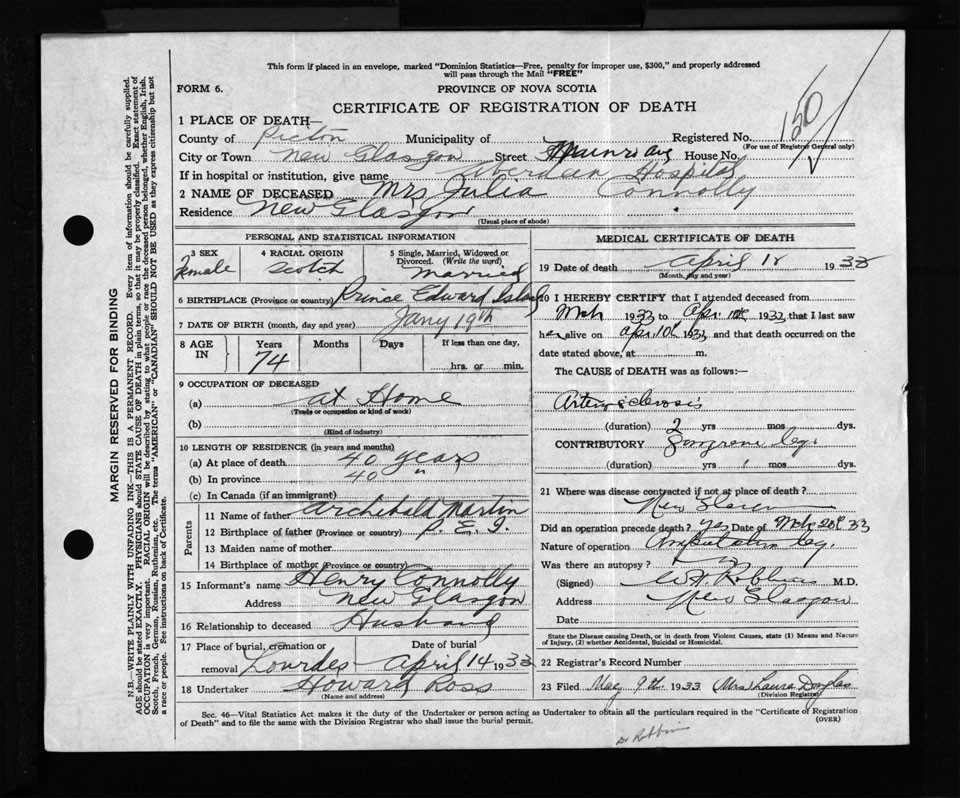 This form if placed in an envelope, marked "Dominion Statistics—Free, penalty for improper use, $300," and properly addressed
will pass through the Mail "FREE"
FORM 6.
PROVINCE OF NOVA SCOTIA
CERTIFICATE OF REGISTRATION OF DEATH
150
1 PLACE OF DEATH—
County of Pictou Municipality of Registered No.
(For use of Registrar General only)
City or Town New Glasgow Street Munro Ave House No.
If in hospital or institution, give name Aberdeen Hospital
2 NAME OF DECEASED Mrs Julia Connolly
Residence New Glasgow
(Usual place of abode)
PERSONAL AND STATISTICAL INFORMATION
3 SEX
Female
4 RACIAL ORIGIN
Scotch
5 Single, Married, Widowed or
Divorced. (Write the word)
Married
6 BIRTHPLACE (Province or country) Prince Edward Island
7 DATE OF BIRTH (month, day and year) Jany 19th
8 AGE
IN
Years
74
Months
Days
If less than one day,
hrs. or min.
9 OCCUPATION OF DECEASED
(a) at Home
(Trade or occupation or kind of work)
(b)
(Kind of industry)
10 LENGTH OF RESIDENCE (in years and months)
(a) At place of death 40 years
(b) In province 40 "
(c) In Canada (if an immigrant)
Parents
11 Name of father Archibald Martin
12 Birthplace of father (Province or country) P. E. I.
13 Maiden name of mother
14 Birthplace of mother (Province or country)
15 Informant's name Henry Connolly
Address New Glasgow
16 Relationship to deceased Husband
17 Place of burial, cremation or Date of burial
removal Lourdes April 14 1933
18 Undertaker Howard Ross
(Name and address)
MEDICAL CERTIFICATE OF DEATH
19 Date of death April 1933
(Month, day and year)
20 I HEREBY CERTIFY that I attended deceased from
Mch 1933 to Apr. 1933, that I last saw
her alive on Apr. 10th 1933, and that death occurred on the
date stated above, at m.
The CAUSE of DEATH was as follows:—
Arterio sclerosis
(duration) 2 yrs mos dys.
CONTRIBUTORY Gangrene leg.
(duration) yrs 1 mos. dys.
21 Where was disease contracted if not at place of death?
New Glasgow
Did an operation precede death? yes Date of Mch 20th 33
Nature of operation Amputation leg.
Was there an autopsy?
(Signed) Robbins M.D.
Address New Glasgow
Date
State the Disease causing Death, or in death from Violent Causes, state (1) Means and Nature
of Injury, (2) whether Accidental, Suicidal or Homicidal.
22 Registrar's Record Number
23 Filed May 9th 1933 Mrs Laura Douglas
(Division Registrar)
Sec. 46—Vital Statistics Act makes it the duty of the Undertaker or person acting as Undertaker to obtain all the particulars required in the "Certificate of Registration
of Death" and to file the same with the Division Registrar who shall issue the burial permit.
(OVER)
Dr Robbins
MARGIN RESERVED FOR BINDING
N.B.—WRITE PLAINLY WITH UNFADING INK—THIS IS A PERMANENT RECORD. Every item of information should be carefully supplied.
AGE should be stated EXACTLY. PHYSICIANS should STATE CAUSE OF DEATH in plain terms, so that it may be properly classified. Exact statement of
OCCUPATION is very important. RACIAL ORIGIN will be described by stating to what people or race the deceased person belonged, whether English, Irish,
Scotch, French, German, Russian, Ruthenian, etc. The terms "AMERICAN" or "CANADIAN" SHOULD NOT BE USED as they express citizenship but not
a race or people. See instructions on back of Certificate.